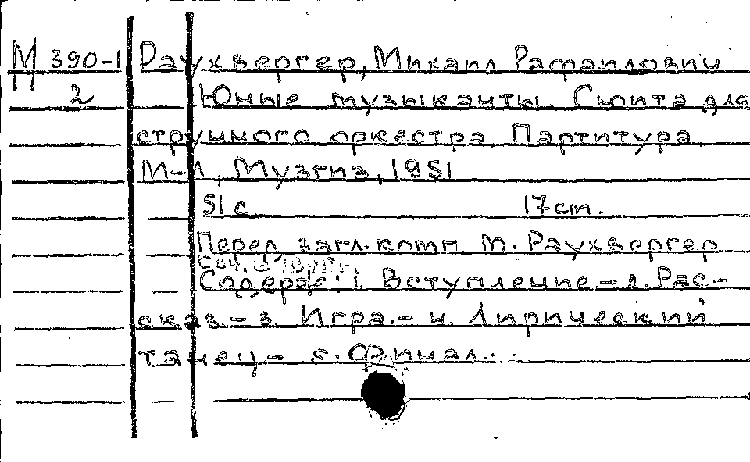 М 390-1 Раухвергер, Михаил Рафаилович
2 Юные музыканты. Сюита для
струнного оркестра Партитура
М-Л, Музгиз, 1951
51 с 17 cm.
Перед загл. комп. М. Раухвергер
Содерж: 1 Вступление – 2. Рас-
сказ – 3. Игра. – 4. Лирический
танец – 5. Финал.